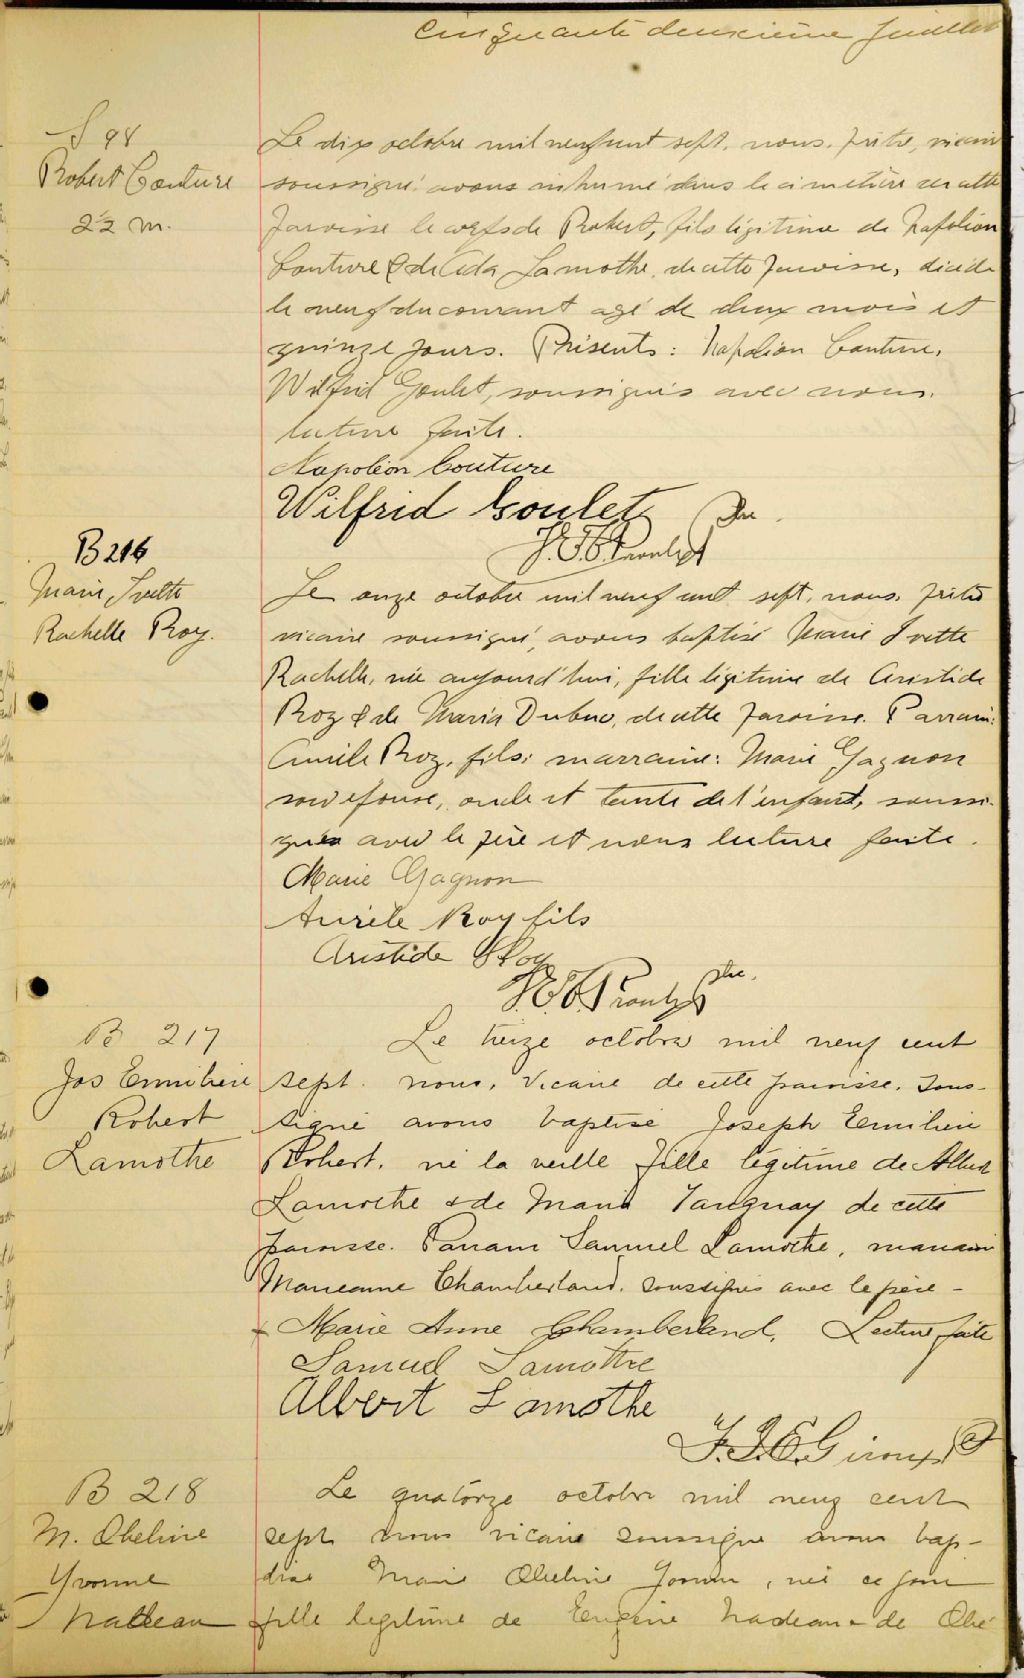 Cinquante deuxième feuillet
S 98
Robert Couture
2½ m.
Le dix octobre mil neuf cent sept, nous, prêtre, vicaire
soussigné avons inhumé dans le cimetière de cette
Paroisse le corps de Robert, fils légitime de Napoléon
Couture & de Alda Lamothe, de cette paroisse, décédé
le neuf du courant agé de deux mois et
quinze jours. Présents: Napoléon Couture,
Wilfrid Goulet, soussignés avec nous.
lecture faite.
Napoléon Couture
Wilfrid Goulet
Ptre
B 216
Marie Ivette
Rachelle Roy.
Le onze octobre mil neuf cent sept, nous, prêtre
vicaire soussigné, avons baptisé Marie Ivette
Rachelle, née aujourd'hui, fille légitime de Aristide
Roy & de Maria Dubuc, de cette paroisse. Parrain:
Aurèle Roy, fils; marraine: Marie Gagnon
son épouse, oncle et tante de l'enfant, soussi-
gnés avec le père et nous lecture faite.
Marie Gagnon
Aurèle Roy fils
Aristide Roy
Ptre.
B 217
Jos Emilien
Robert
Lamothe
Le treize octobre mil neuf cent
sept. nous, vicaire de cette paroisse, sous-
signé avons baptisé Joseph Emilien
Robert, né la veille fille légitime de Albert
Lamothe & de Maria Tanguay de cette
paroisse. Parrain Samuel Lamothe, marraine
Marieanne Chamberland, soussignés avec le père -
Marie Anne Chamberland, Lecture faite
Samuel Lamothe
Albert Lamothe
F.J.E. Giroux
B 218
M. Obeline
Yvonne
Nadeau
Le quatorze octobre mil neuf cent
sept nous vicaire soussigné avons bap-
tisé Marie Obeline Yvonne, née ce jour
fille legitime de Eugène Nadeau & de Obé